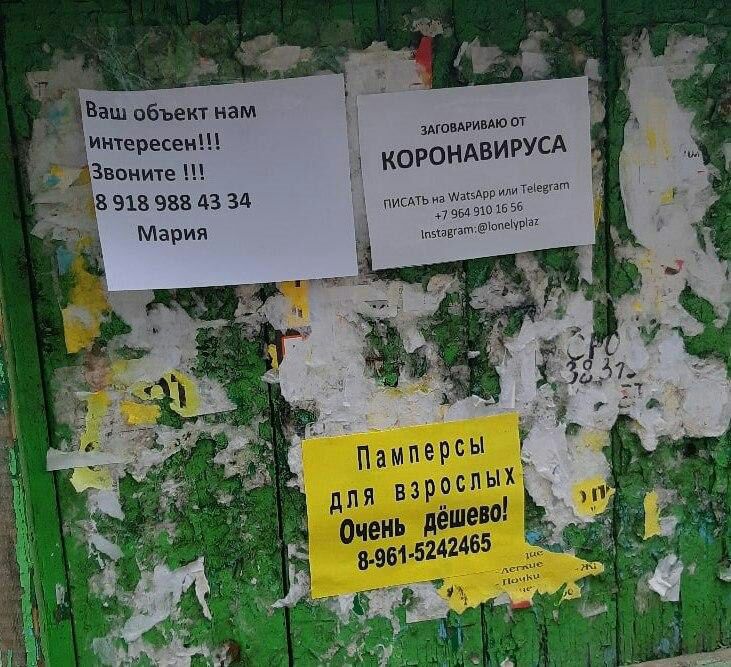 Ваш объект нам
интересен!!!
Звоните !!!
8 918 988 43 34
Мария
ЗАГОВАРИВАЮ ОТ
КОРОНАВИРУСА
ПИСАТЬ на WatsApp или Telegram
+7 964 910 16 56
Instagram:@lonelyplaz
Памперсы
для взрослых
Очень дёшево!
8-961-5242465
Легкие
Почки